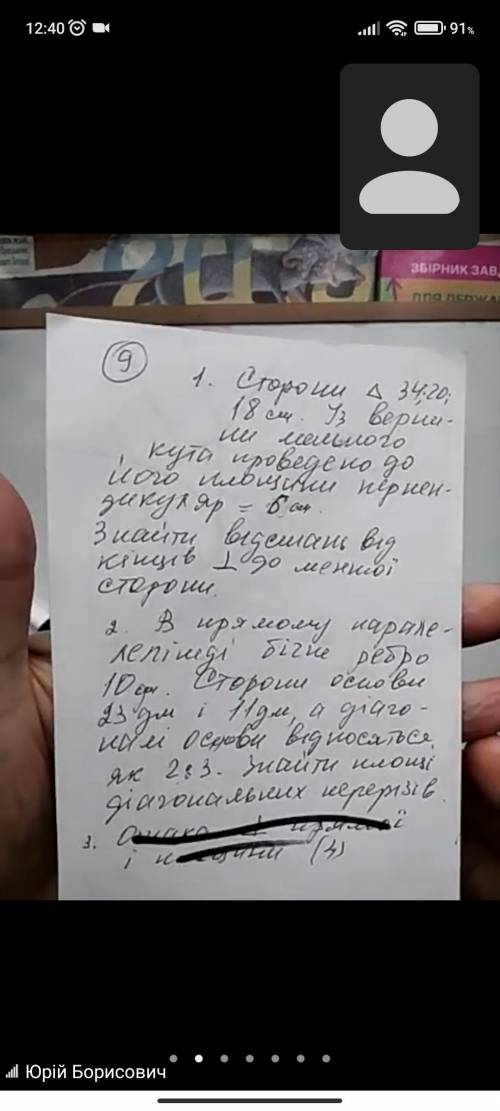 12:40
91%
ЗБІРНИК ЗАВД
ДЛЯ ДЕРЖА
9
1. Сторони Δ 34; 20;
18 см. Із верши-
ни меншого
кута проведено до
його площини перпен-
дикуляр = 6 см.
Знайти відстань від
кінців ⊥ до меншої
сторони.
2. В прямому парале-
лепіпеді бічне ребро
10 дм. Сторони основи
23 дм і 11 дм, а діаго-
налі основи відносяться
як 2:3. Знайти площі
діагональних перерізів.
3.
і (4)
Юрій Борисович